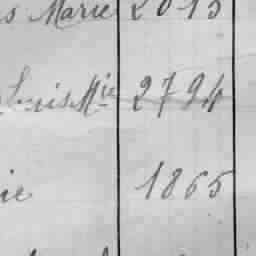 s Marie 2015
Louis Mie 2794
ie 1865